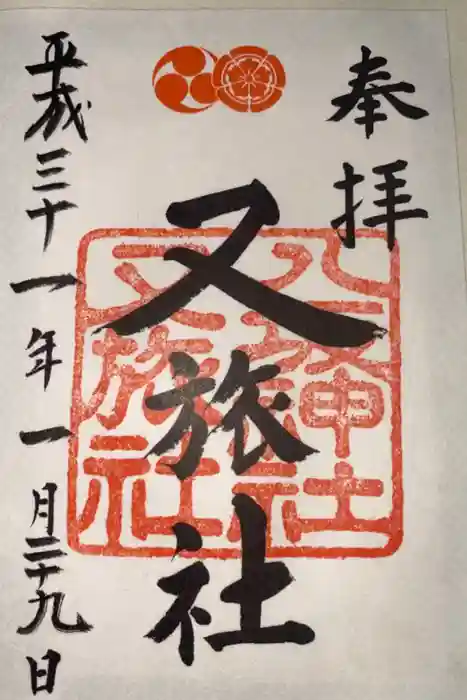 奉拝
八坂神社
又旅社
又旅社
平成三十一年一月二十九日